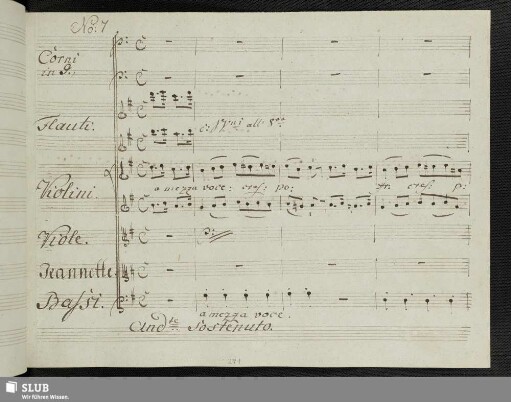 No: 7
Corni
in G.
Flauti.
Violini.
a mezza voce: cresc: po:
cresc: p:
Viole.
Jeannette.
Bassi.
a mezza voce.
And.te Sostenuto.
SLUB
Wir führen Wissen.